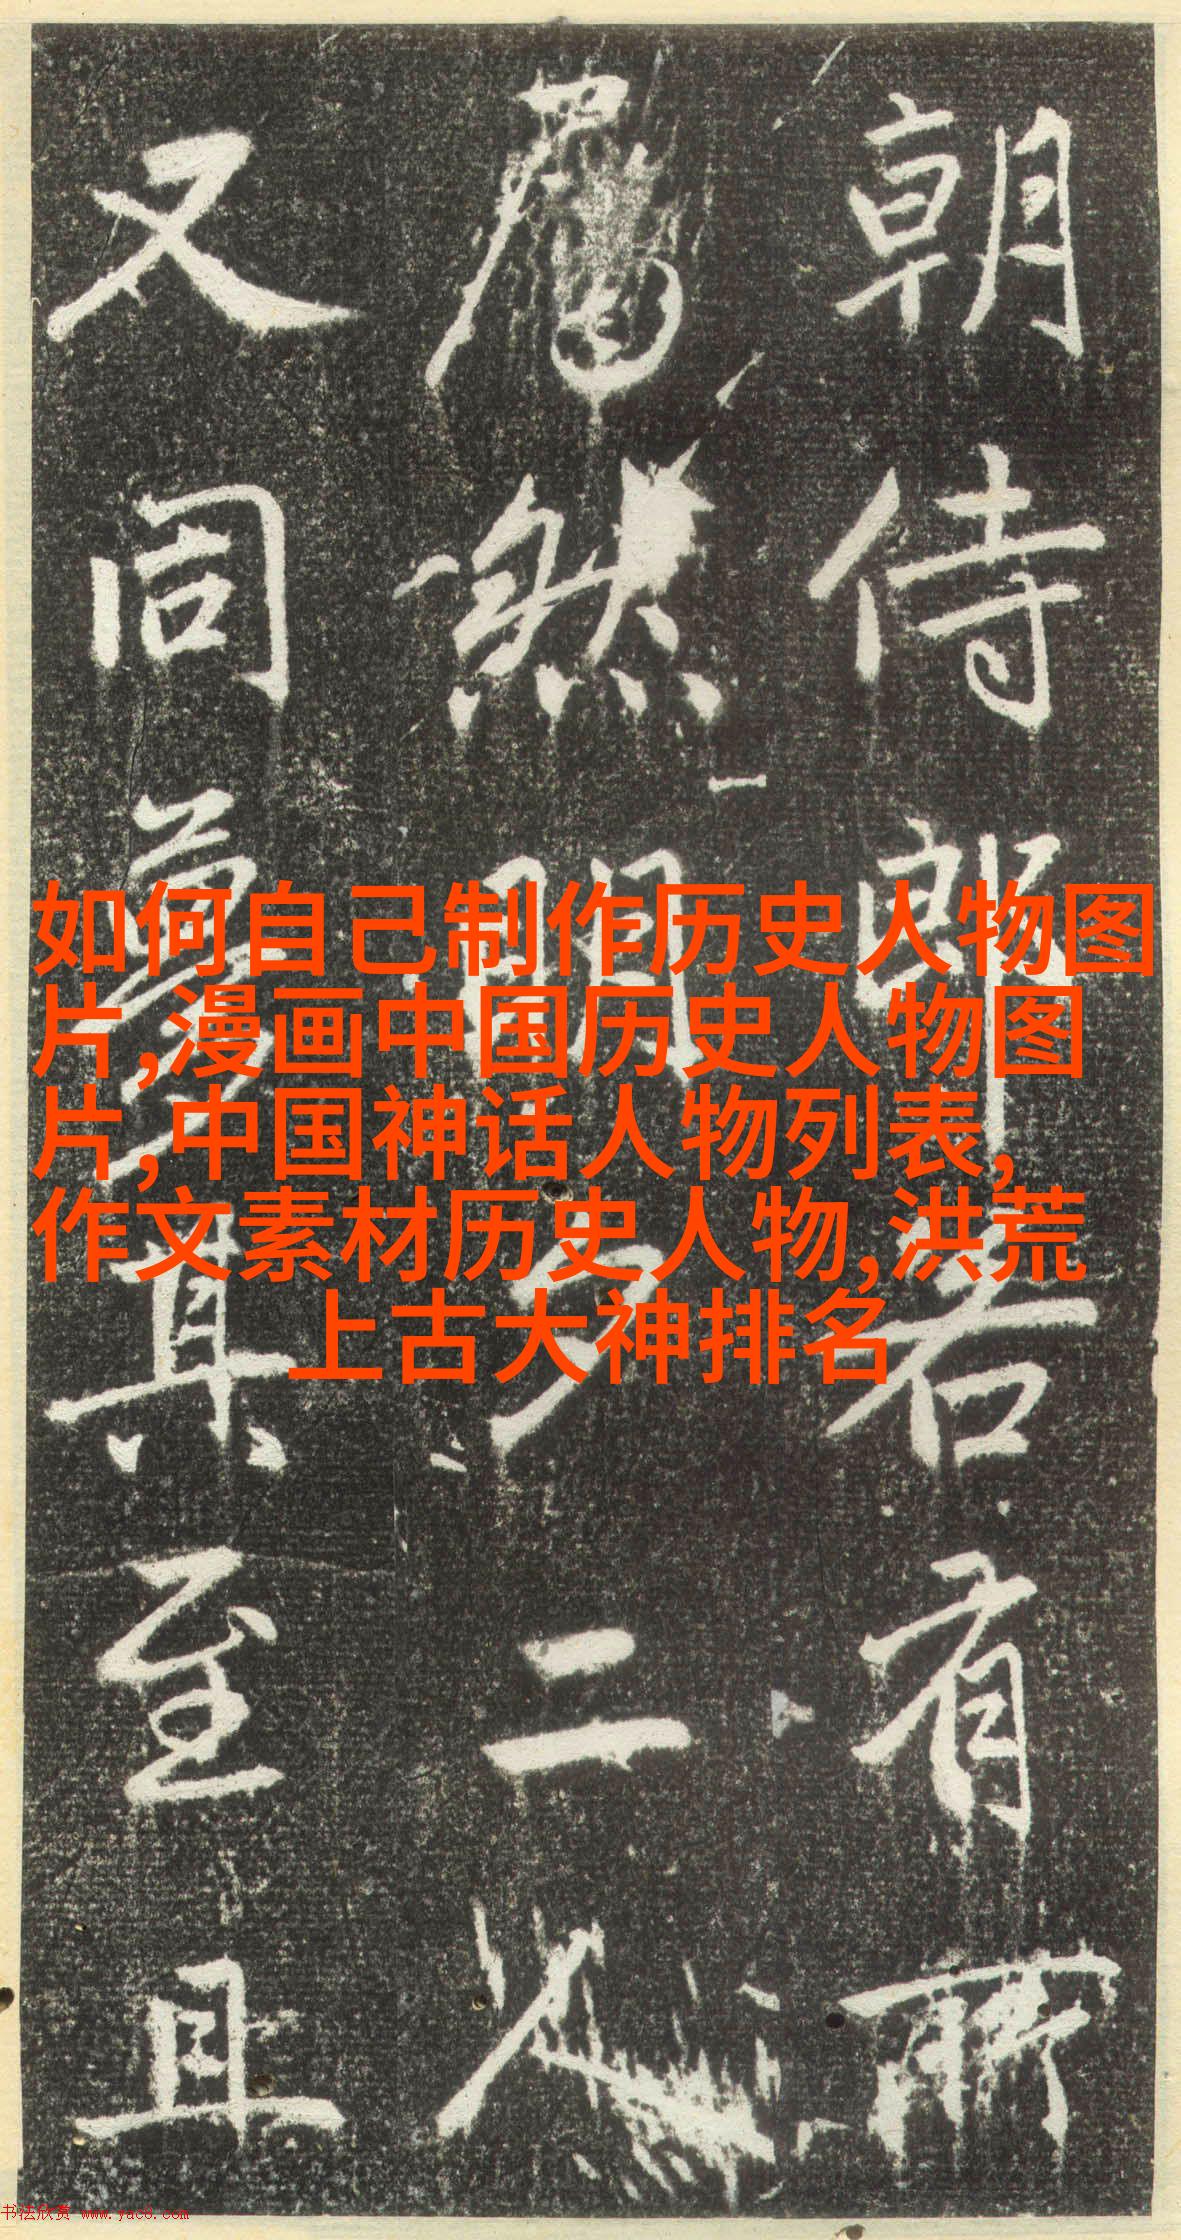 朝侍郎若有所
然間夕二人
又同尊其至且
如何自己制作历史人物图
片,漫画中国历史人物图
片,中国神话人物列表,
作文素材历史人物,洪荒
上古大神排名
书法欣赏 www.yac8.com